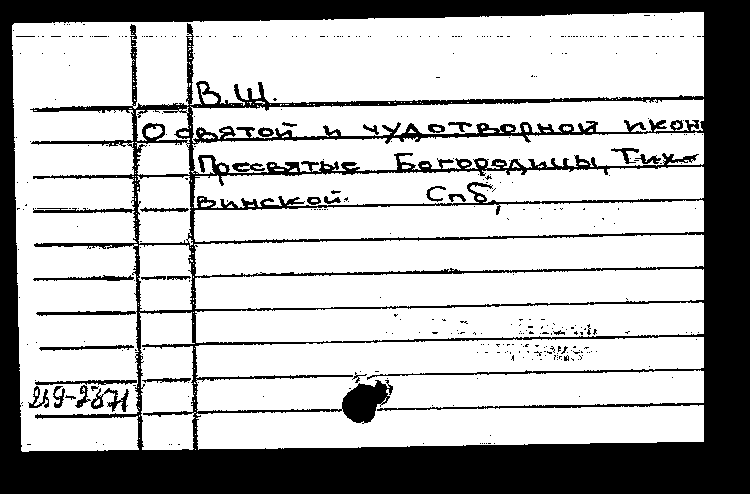 В.Щ.
О святой и чудотворной икон
Пресвятые Богородицы, Тих-
винской. Спб,